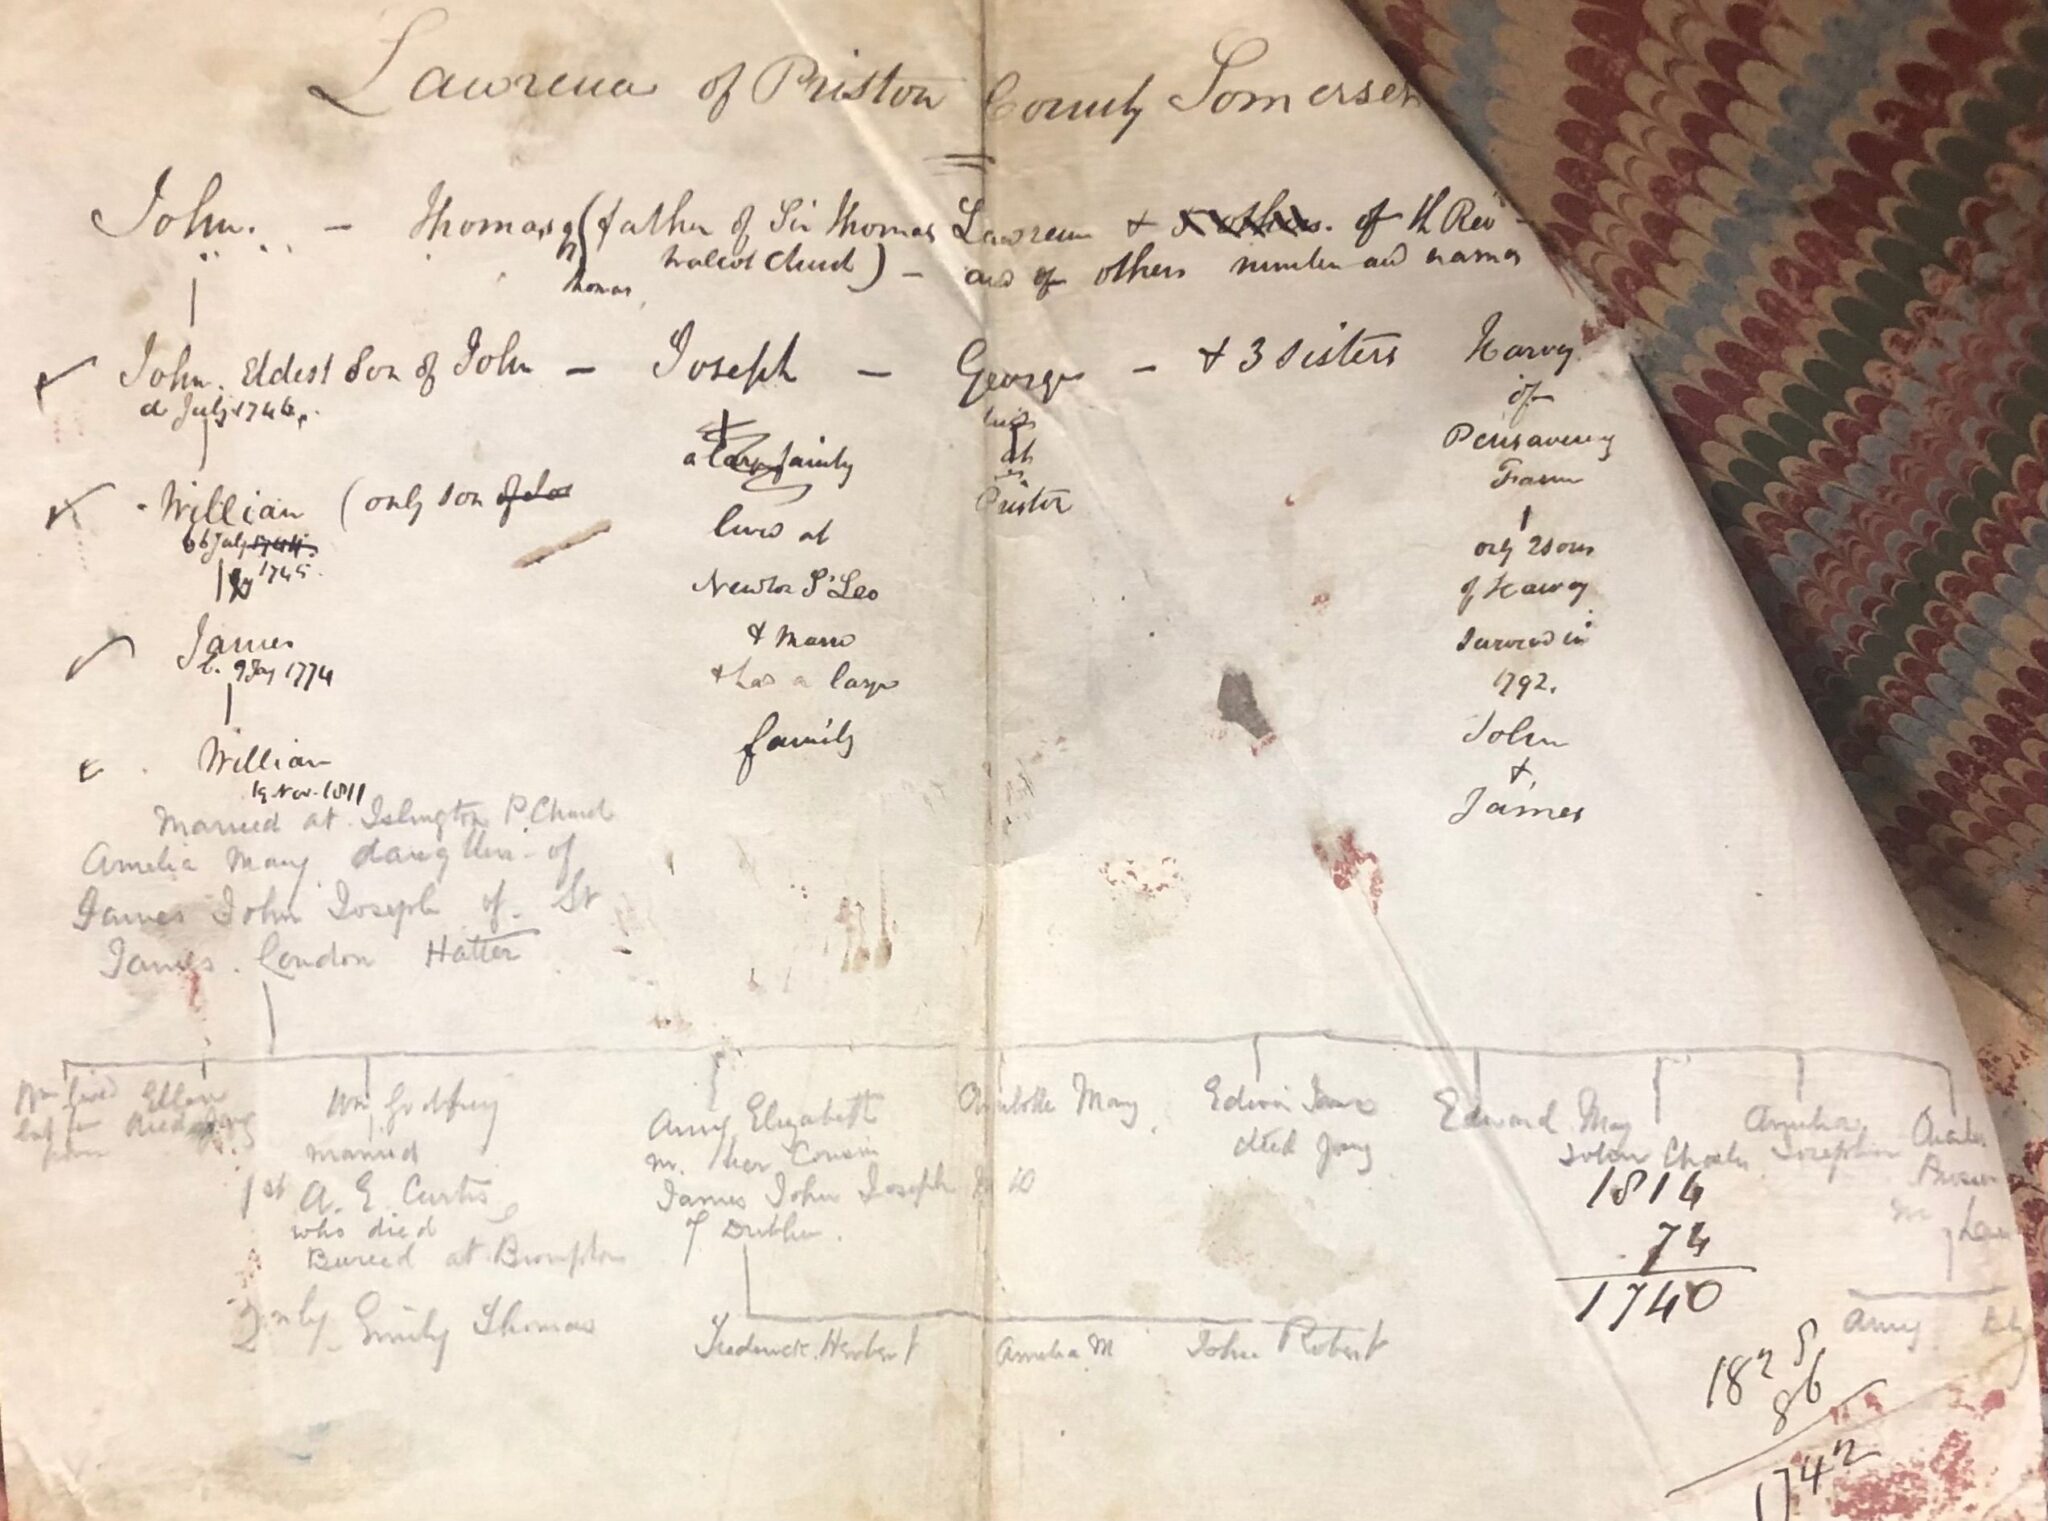 Lawrence of Priston County Somerset
John. - Thomas (father of Sir Thomas Lawrence + of th Rev
Thomas Walcot Church) - and of others number and names
John. Eldest Son of John - Joseph - George - + 3 sisters Harvey
d July 1746.
of
Pensaveny
Farm
a large family
lives
at
Priston
William (only son of
lives at
6 July
1745
only 2 sons
Newton St Leo
of Harvey
James
b. 9 Jay 1774
+ Marr
survived in
+ has a large
1792.
family
John
+
James
William
19 Nov. 1811
Married at Islington P Church
Amelia Mary daughter of
James John Joseph of St
James. London Hatter
Ellen
Wm Godfrey
married
1st A. E. Curtis
who died
Buried at Brompton
2nly Emily Thomas
Amy Elizabeth
m. her Cousin
James John Joseph
of Dublin.
Charlotte Mary
Edwin James
died young
Edward May
John Charles
Amelia
Josephine
Charles
Frederick Herbert
Amelia M
John Robert
Amy
1814
74
1740
1828
86
1742